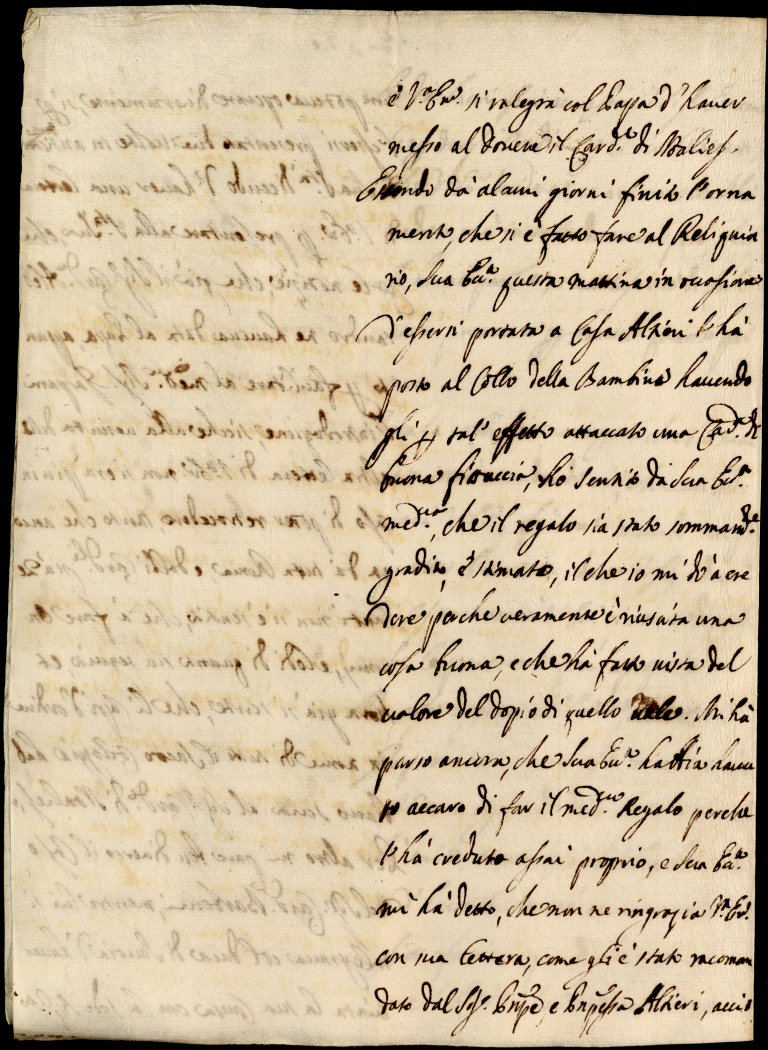 è V.ra Em.a si ralegra col Papa d'hauer
messo al douere il Card.le di
Essendo da alcuni giorni finito l'orna
mento, che si è fatto fare al Reliquia
rio, Sua Ecc.a questa mattina in ocasione
d'essersi portata a Casa Altieri l'hà
posto al Collo della Bambina hauendo
gli p tal' effetto attaccato una
buona fittuccia, hò sentito da Sua Ecc.a
med.ma, che il regalo sia stato sommam.te
gradito, è stimato, il che io mi dò a cre
dere perche ueramente è riuscita una
cosa buona, e che hà fatto uista del
ualore del dopio di quello uale. Mi hà
parso ancora, che Sua Ecc.a habbia hauu
to accaro di far il med.mo Regalo perche
l'hà creduto assai proprio, e Sua Ecc.a
mi hà detto, che non ne ringrazia V.ra Em.a
con sua lettera, come gli è stato racoman
dato dal Sig.r Pnpe, e Pnpessa Altieri, acciò